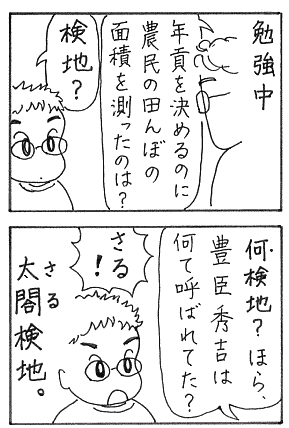 勉強中
年貢を決めるのに
農民の田んぼの
面積を測ったのは？
検地？
何検地？ほら、
豊臣秀吉は
何て呼ばれてた？
さる！
さる
太閤検地。